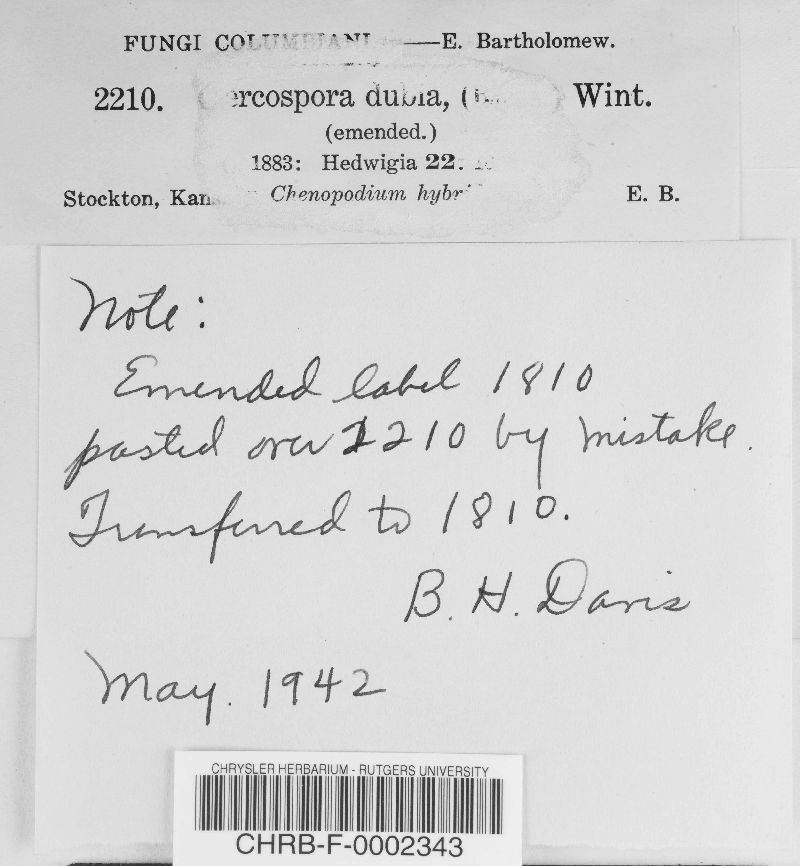 FUNGI COLUMBIANI —E. Bartholomew.
2210. Cercospora dubia, ( Wint.
(emended.)
1883: Hedwigia 22.
Stockton, Kan Chenopodium hybri E. B.
Note:
Emended label 1810
pasted over 2210 by mistake.
Transferred to 1810.
B. H. Davis
May. 1942
CHRYSLER HERBARIUM - RUTGERS UNIVERSITY
CHRB-F-0002343